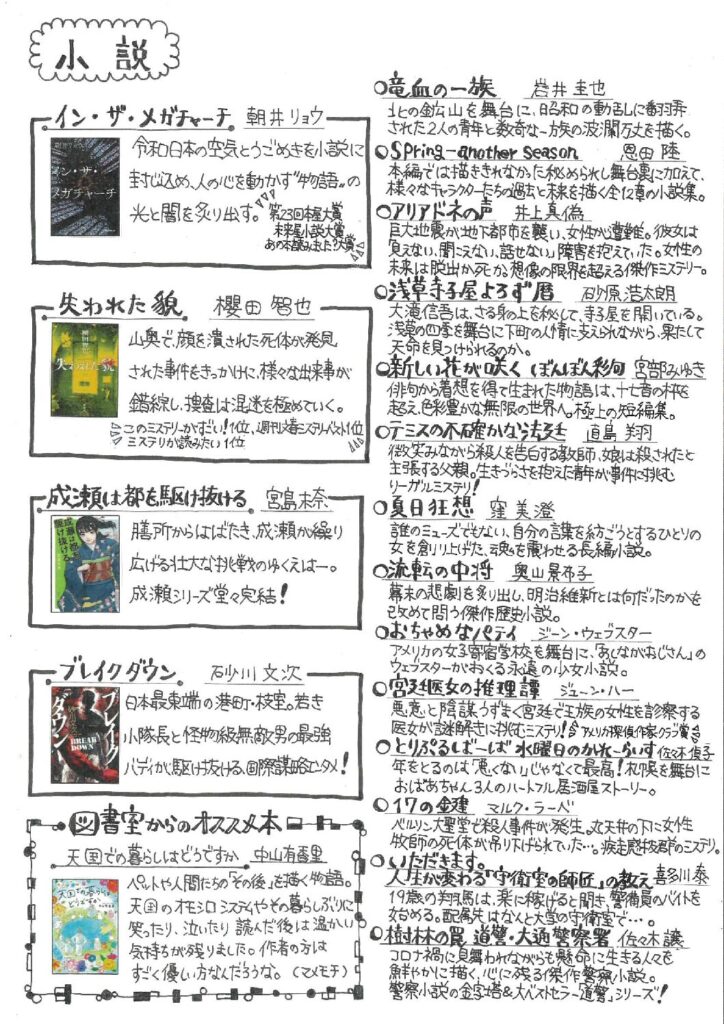 小説
イン・ザ・メガチャーチ 朝井リョウ
イン・ザ・
メガチャーチ
令和日本の空気とうごめきを小説に
封じ込め、人の心を動かす“物語”の
光と闇を炙り出す。
第23回本屋大賞
未来屋小説大賞
あの本読みました?大賞
失われた貌 櫻田智也
櫻田智也
失われた貌
山奥で、顔を潰された死体が発見
された事件をきっかけに、様々な出来事が
錯綜し、捜査は混迷を極めていく。
このミステリーがすごい!1位、週刊文春ミステリーベスト1位
ミステリが読みたい1位
成瀬は都を駆け抜ける 宮島未奈
成瀬は都を
駆け抜ける
膳所からはばたき、成瀬が繰り
広げる壮大な挑戦のゆくえはー。
成瀬シリーズ堂々完結!
ブレイクダウン 砂川文次
ブレイク
ダウン
BREAK
DOWN
日本最東端の港町・枝室。若き
小隊長と怪物級無敵男の最強
バディが駆け抜ける、国際謀略エンタメ!
図書室からのオススメ本
天国での暮らしはどうですか 中山有香里
天国での暮らしは
どうですか
ペットや人間たちの「その後」を描く物語。
天国のオモシロシステムやその暮らしぶりに
笑ったり、泣いたり 読んだ後は温かい
気持ちが残りました。作者の方は
すごく優しい方なんだろうな。(マメモチ)
○竜血の一族 岩井圭也
北の鉱山を舞台に、昭和の動乱に翻弄
された2人の青年と数奇な一族の波瀾万丈を描く。
○spring-another season 恩田陸
本編では描ききれなかった秘められし舞台裏に加えて、
様々なキャラクターたちの過去と未来を描く全12章の小説集。
○アリアドネの声 井上真偽
巨大地震が地下都市を襲い、女性が遭難。彼女は
「見えない、聞こえない、話せない」障害を抱えていた。女性の
未来は脱出か死か。想像の限界を超える傑作ミステリー。
○浅草寺子屋よろず暦 砂原浩太朗
大滝信吾は、さる身の上を秘して、寺子屋を開いている。
浅草の四季を舞台に下町の人情に支えられながら、果たして
天命を見つけられるのか。
○新しい花が咲く ぼんぼん彩句 宮部みゆき
俳句から着想を得て生まれた物語は、十七音の枠を
超え、色彩豊かな無限の世界へ。極上の短編集。
○テミスの不確かな法廷 直島翔
微笑みながら殺人を告白する教師、娘は殺されたと
主張する父親。生きづらさを抱えた青年が事件に挑む
リーガルミステリ!
○夏日狂想 窪美澄
誰のミューズでもない、自分の言葉を紡ごうとするひとりの
女を創り上げた、魂を震わせる長編小説。
○流転の中将 奥山景布子
幕末の悲劇を炙り出し、明治維新とは何だったのかを
改めて問う傑作歴史小説。
○おちゃめなパティ ジーン・ウェブスター
アメリカの女子寄宿学校を舞台に、「あしながおじさん」の
ウェブスターがおくる永遠の少女小説。
○宮廷医女の推理譚 ジューン・ハー
悪意と陰謀うずまく宮廷で王族の女性を診察する
医女が謎解きに挑むミステリ!アメリカ探偵作家クラブ賞
○とりぷるばーば 水曜日のかれーらいす 佐々木信子
年をとるのは「悪くない」じゃなくて最高!札幌を舞台に
おばあちゃん3人のハートフル居酒屋ストーリー。
○17の鍵 マルク・ラーベ
ベルリン大聖堂で殺人事件が発生。丸天井の下に女性
牧師の死体が吊り下げられていた…。疾走感抜群のミステリ。
○いただきます。
人生が変わる「守衛室の師匠」の教え 喜多川泰
19歳の翔馬は、楽に稼げると聞き、警備員のバイトを
始める。配属先はなんと大学の守衛室で…。
○樹林の罠 道警・大通警察署 佐々木譲
コロナ禍に見舞われながらも懸命に生きる人々を
鮮やかに描く、心に残る傑作警察小説。
警察小説の金字塔&大ベストセラー「道警」シリーズ!